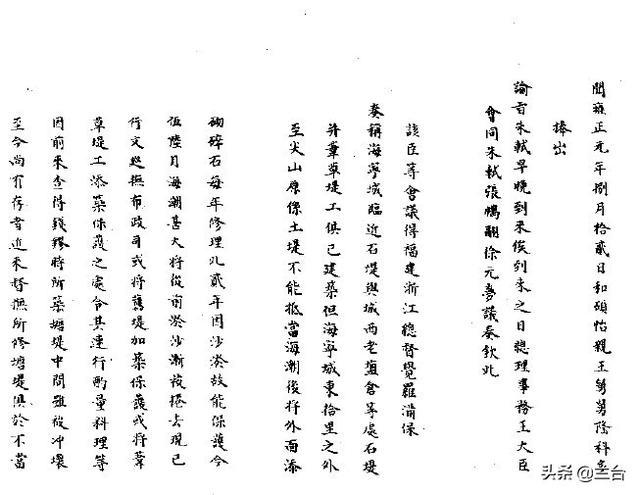 雍正元年捌月拾貳日和碩怡親王舅舅隆科多
捧出
諭旨朱軾早晚到來俟到來之日總理事務王大臣
會同朱軾張鵬翮徐元夢議奏欽此
該臣等會議得福建浙江總督覺羅滿保
奏稱海寧城臨近石堤與城西老鹽倉等處石堤
并葦草堤工俱已建築但海寧城東拾里之外
至尖山原係土堤不能抵當海潮後將外面添
砌碎石每年修理此貳年因沙淤故能保護今
伍陸月海潮甚大將從前淤沙漸被捲去現已
行文巡撫布政司或將舊堤加築保護或將葦
草堤工添築保護之處令其速行酌量料理等
因前來查得錢鏐時所築塘堤中間雖被冲壞
至今尚有存者近來督撫所修塘堤俱於不當
头条 @兰台